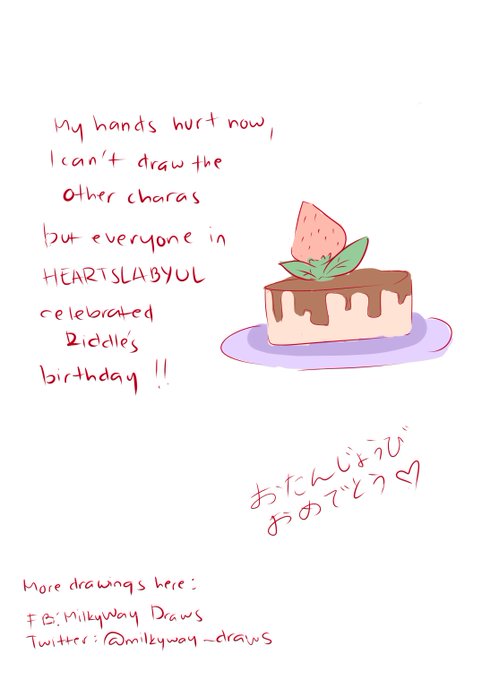 My hands hurt now,
I can't draw the
other charas
but everyone in
HEARTSLABYUL
celebrated
Riddle's
birthday !!
おたんじょうび
おめでとう♡
More drawings here:
FB: MilkyWay Draws
Twitter: @milkyway_draws